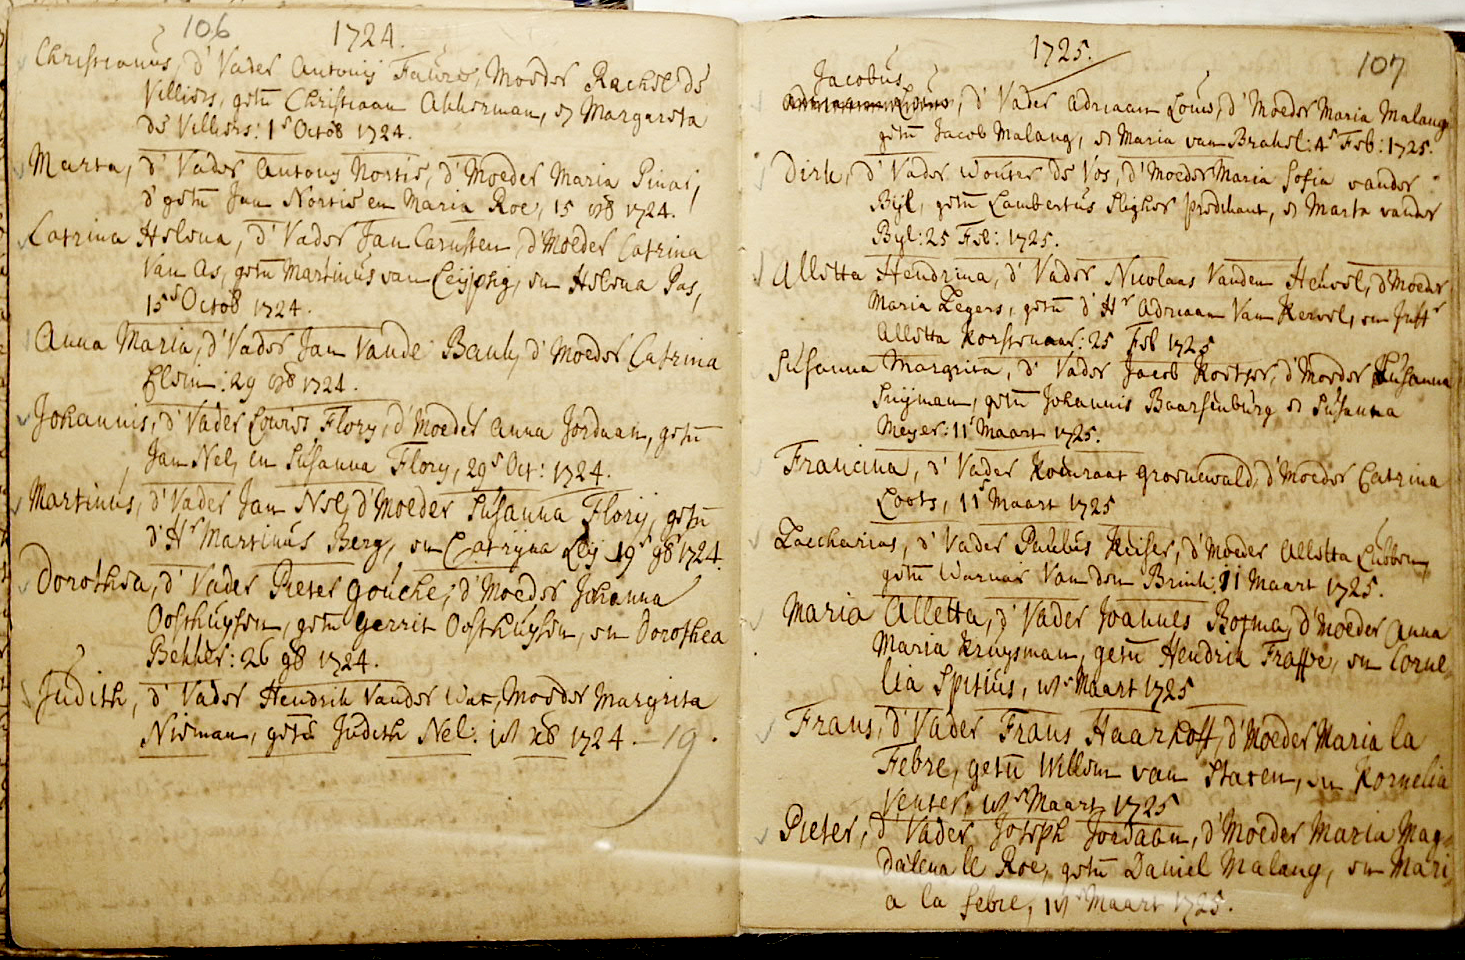 106
1724.
Christianus, d' Vader Antonij Faure, Moeder Rachel de
Villiers, getu Christiaan Akkerman, en Margareta
de Villiers: 1 Octob 1724.
Marta, d' Vader Antony Nortie, d' Moeder Maria Pinai,
d' getu Jan Nortie en Maria Roe, 15 1724.
Catrina Helena, d' Vader Jan Carusten, d' Moeder Catrina
Van As, getu Martinus van Leijphig, en Helena Pas,
15 Octob 1724.
Anna Maria, d' Vader Jan Vande Bank, d' Moeder Catrina
: 29 1724.
Johannis, d' Vader Louies Flory, d' Moeder Anna Jordaan, getu
Jan Nel, en Susanna Flory, 29 Oct: 1724.
Martinus, d' Vader Jan Nel, d' Moeder Susanna Florij, getu
d' Hr Martinus Berg, en Catryna Leij 19 9b 1724.
Dorothea, d' Vader Pieter Gouche, d' Moeder Johanna
Oosthuysen, getu Gerrit Oosthuysen, en Dorothea
Bekker: 26 9b 1724.
Judith, d' Vader Hendrik Vander Wat, Moeder Margrita
Nieman, getu Judith Nel: xb 1724. 19.
1725.
107
Jacobus
, d' Vader Adriaan Louw, d' Moeder Maria Malang
getu Jacob Malang, en Maria van Brakel: 4 Feb: 1725.
Dirk, d' Vader Wouter de Vos, d' Moeder Maria Sofia vander
Bijl, getu Lambertus Sligher predikant, en Marta vander
Byl: 25 Feb: 1725.
Alletta Hendrina, d' Vader Nicolaas Vanden Heuvel, d' Moeder
Maria Zegers, getu d' Hr Adriaan Van Kervel, en Juffr
Alletta Korssenaar: 25 Feb 1725
Susanna Margrita, d' Vader Jacob Koetser, d' Moeder Susanna
Snijman, getu Johannis Baarsenburg en Susanna
Meyer: 11 Maart 1725.
Francina, d' Vader Koenraat Groenewald, d' Moeder Catrina
Loots, 11 Maart 1725
Zaccharias, d' Vader Paulus Keiser, d' Moeder Alletta Lubben,
getu Warnar Van den Brink: 11 Maart 1725.
Maria Alletta, d' Vader Joannes Botma, d' Moeder Anna
Maria Kruysman, getu Hendrik Fraffe, en Corne
lia Spitius, Maart 1725
Frans, d' Vader Frans Haarhoff, d' Moeder Maria la
Febre, getu Willem van Staden, en Kornelia
Venter, Maart 1725
Pieter, d' Vader Joseph Jordaan, d' Moeder Maria Mag
dalena le Roe, getu Daniel Malang, en Mari
a la febre, Maart 1725.